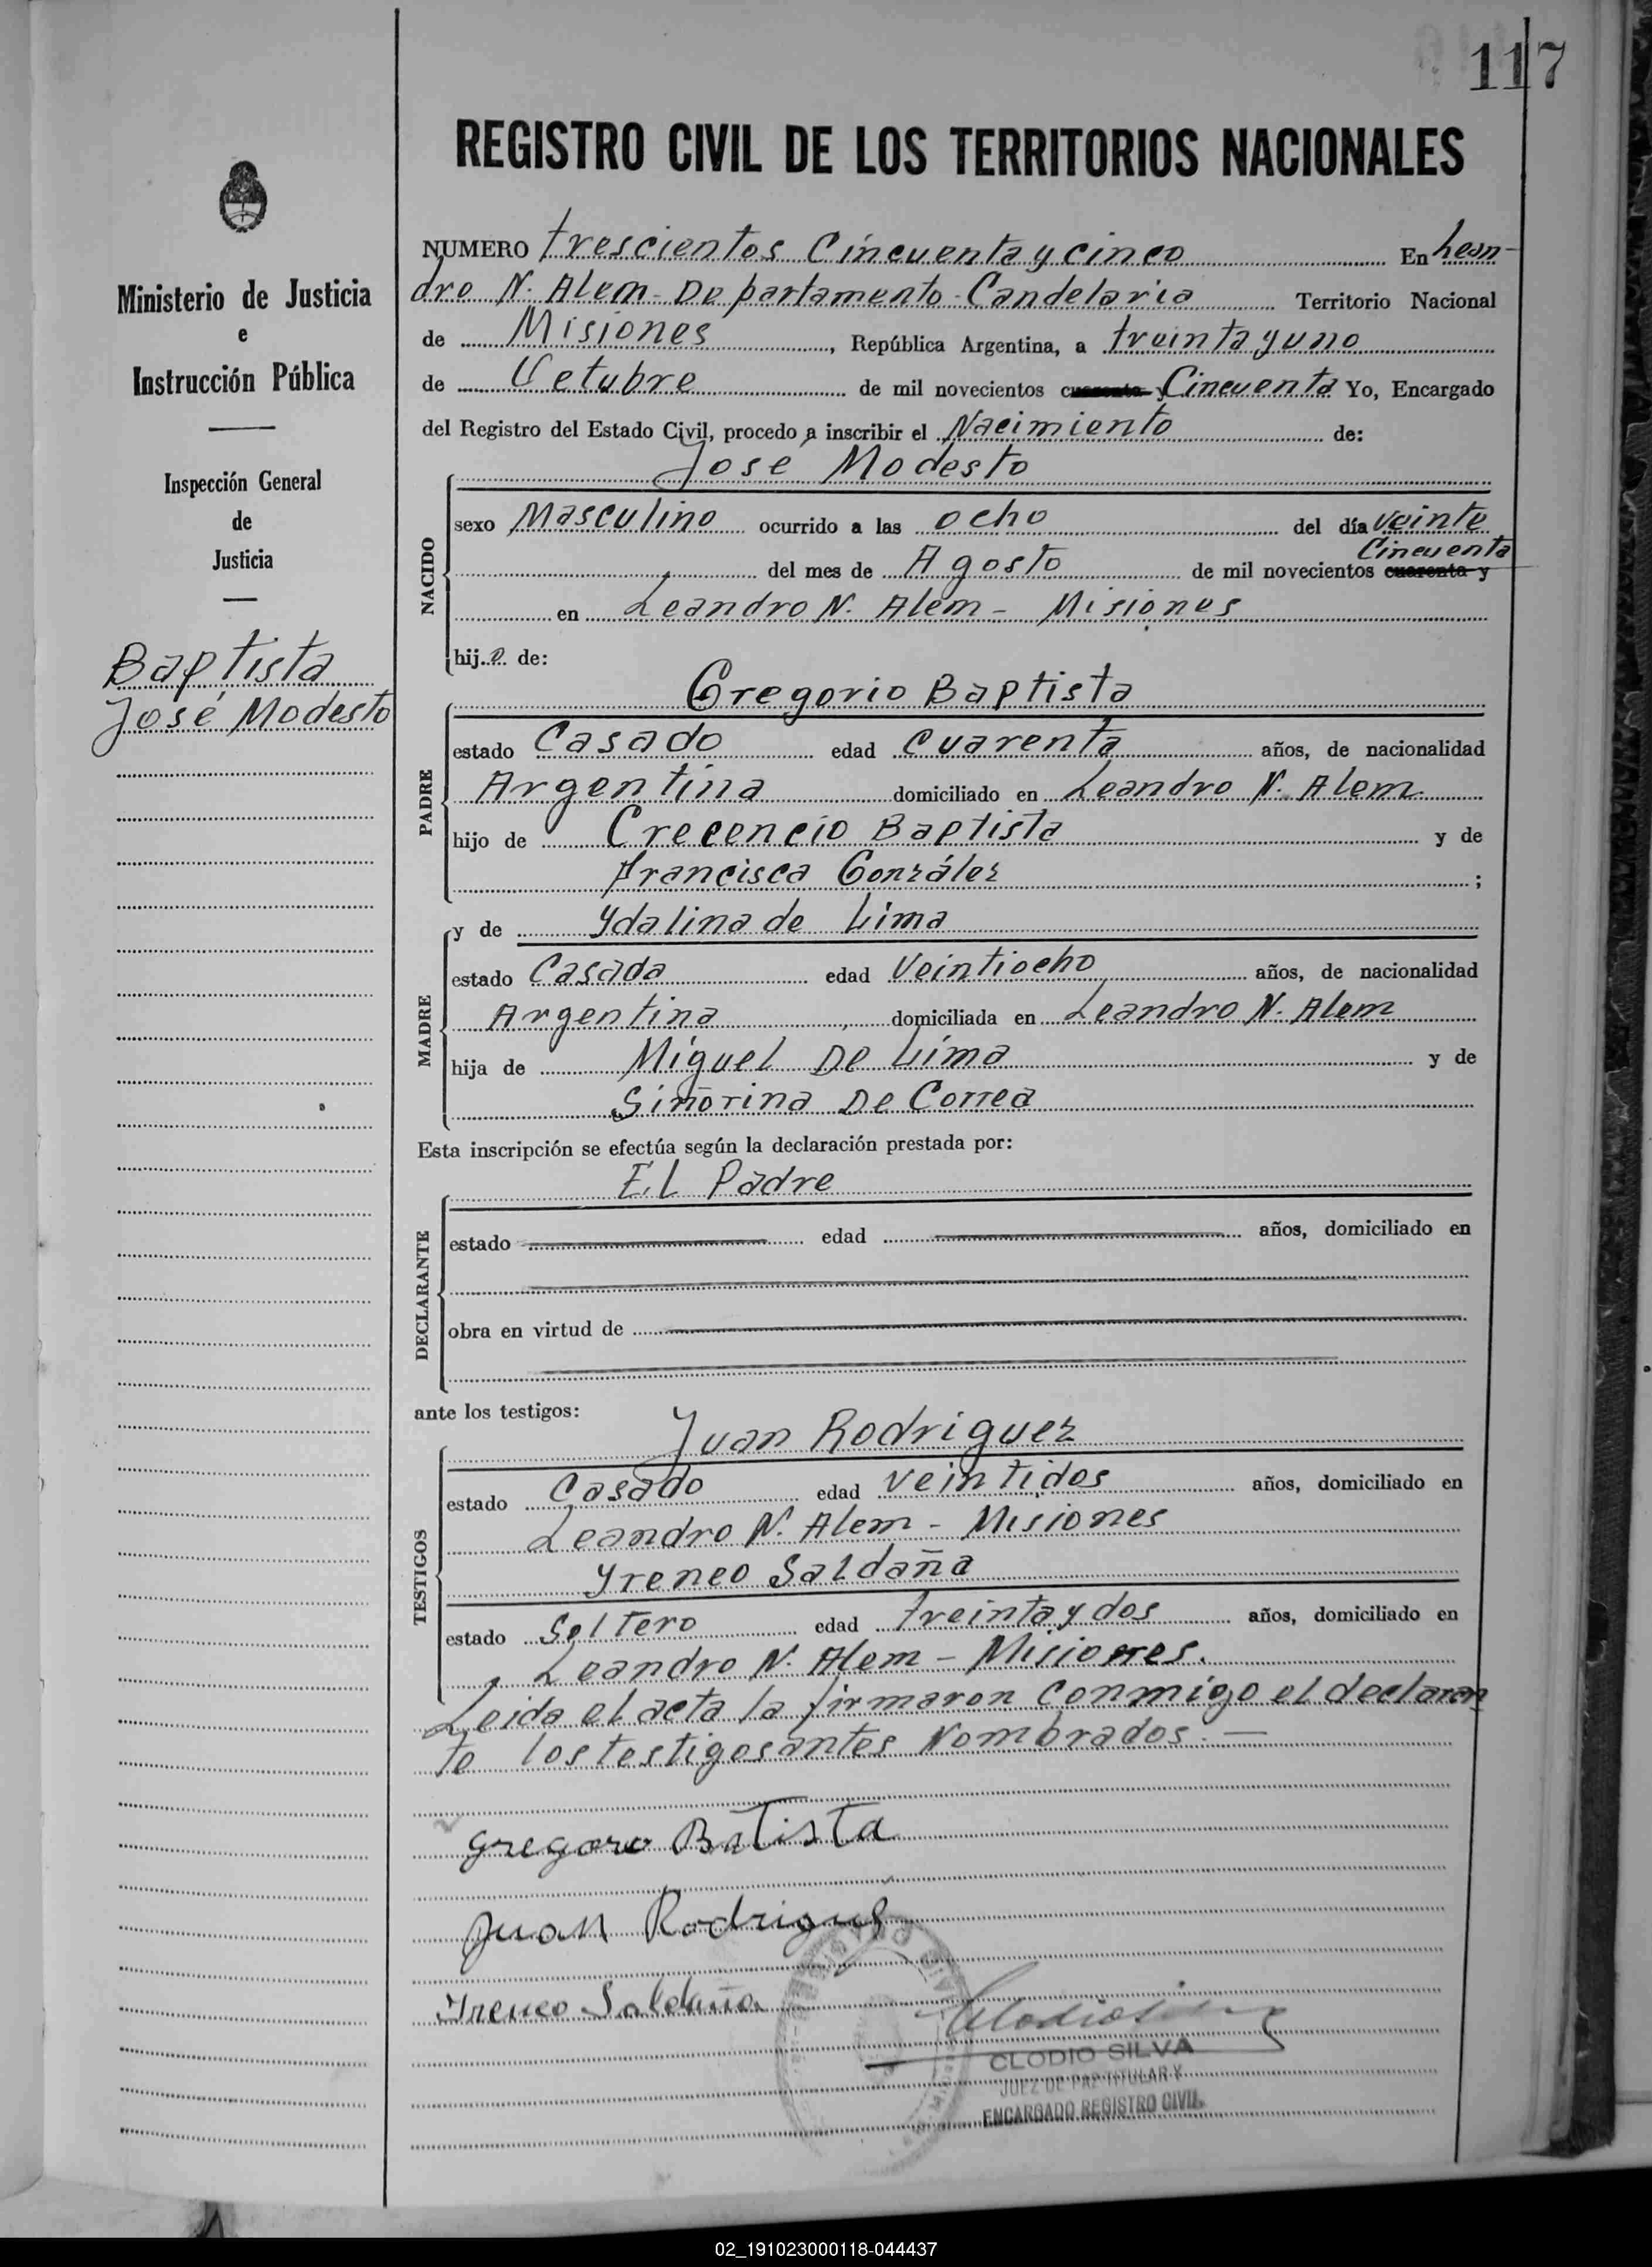 117
REGISTRO CIVIL DE LOS TERRITORIOS NACIONALES
Ministerio de Justicia
e
Instrucción Pública
Inspección General
de
Justicia
Baptista
José Modesto
NUMERO trescientos Cincuenta y cinco En Lean-
dro N. Alem - Departamento - Candelaria Territorio Nacional
de Misiones, República Argentina, a treinta y uno
de Octubre de mil novecientos cuarenta y Cincuenta Yo, Encargado
del Registro del Estado Civil, procedo a inscribir el Nacimiento de:
José Modesto
NACIDO
sexo Masculino ocurrido a las ocho del día veinte
Cincuenta
del mes de Agosto de mil novecientos cuarenta y
en Leandro N. Alem - Misiones
hijo de:
Gregorio Baptista
PADRE
estado Casado edad Cuarenta años, de nacionalidad
Argentina domiciliado en Leandro N. Alem
hijo de Crecencio Baptista y de
Francisca González ;
y de Ydalina de Lima
MADRE
estado Casada edad Veintiocho años, de nacionalidad
Argentina domiciliada en Leandro N. Alem
hija de Miguel De Lima y de
Siñorina De Correa
Esta inscripción se efectúa según la declaración prestada por:
El Padre
DECLARANTE
estado edad años, domiciliado en
obra en virtud de
ante los testigos:
Juan Rodriguez
TESTIGOS
estado Casado edad veintidos años, domiciliado en
Leandro N. Alem - Misiones
Yreneo Saldaña
estado Soltero edad treinta y dos años, domiciliado en
Leandro N. Alem - Misiones.
Leida el acta la firmaron conmigo el declaran
te los testigos antes Nombrados. —
Gregoro Batista
Juan Rodrigues
Ireneo Saldaña
CLODIO SILVA
JUEZ DE PAZ TITULAR Y
ENCARGADO REGISTRO CIVIL
02_191023000118-044437